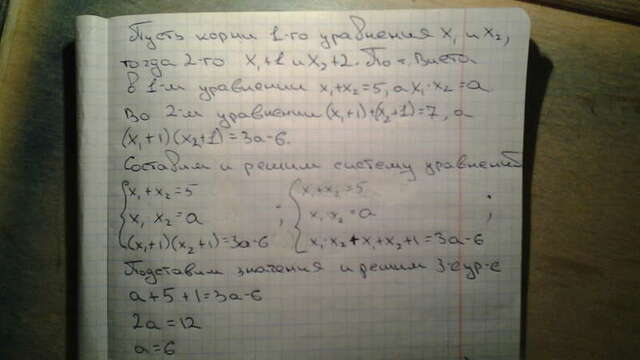 Пусть корни 1-го уравнения x₁ и x₂,
тогда 2-го x₁+1 и x₂+2. По т. Виета.
В 1-м уравнении x₁+x₂=5, а x₁·x₂=a
Во 2-м уравнении (x₁+1)+(x₂+1)=7, а
(x₁+1)(x₂+1)=3a-6.
Составим и решим систему уравнений
{ x₁+x₂=5 ; { x₁+x₂=5 ;
x₁ x₂=a x₁·x₂=a
(x₁+1)(x₂+1)=3a-6 x₁·x₂+x₁+x₂+1=3a-6
Подставим значения и решим 3-е ур-е
a+5+1=3a-6
2a=12
a=6